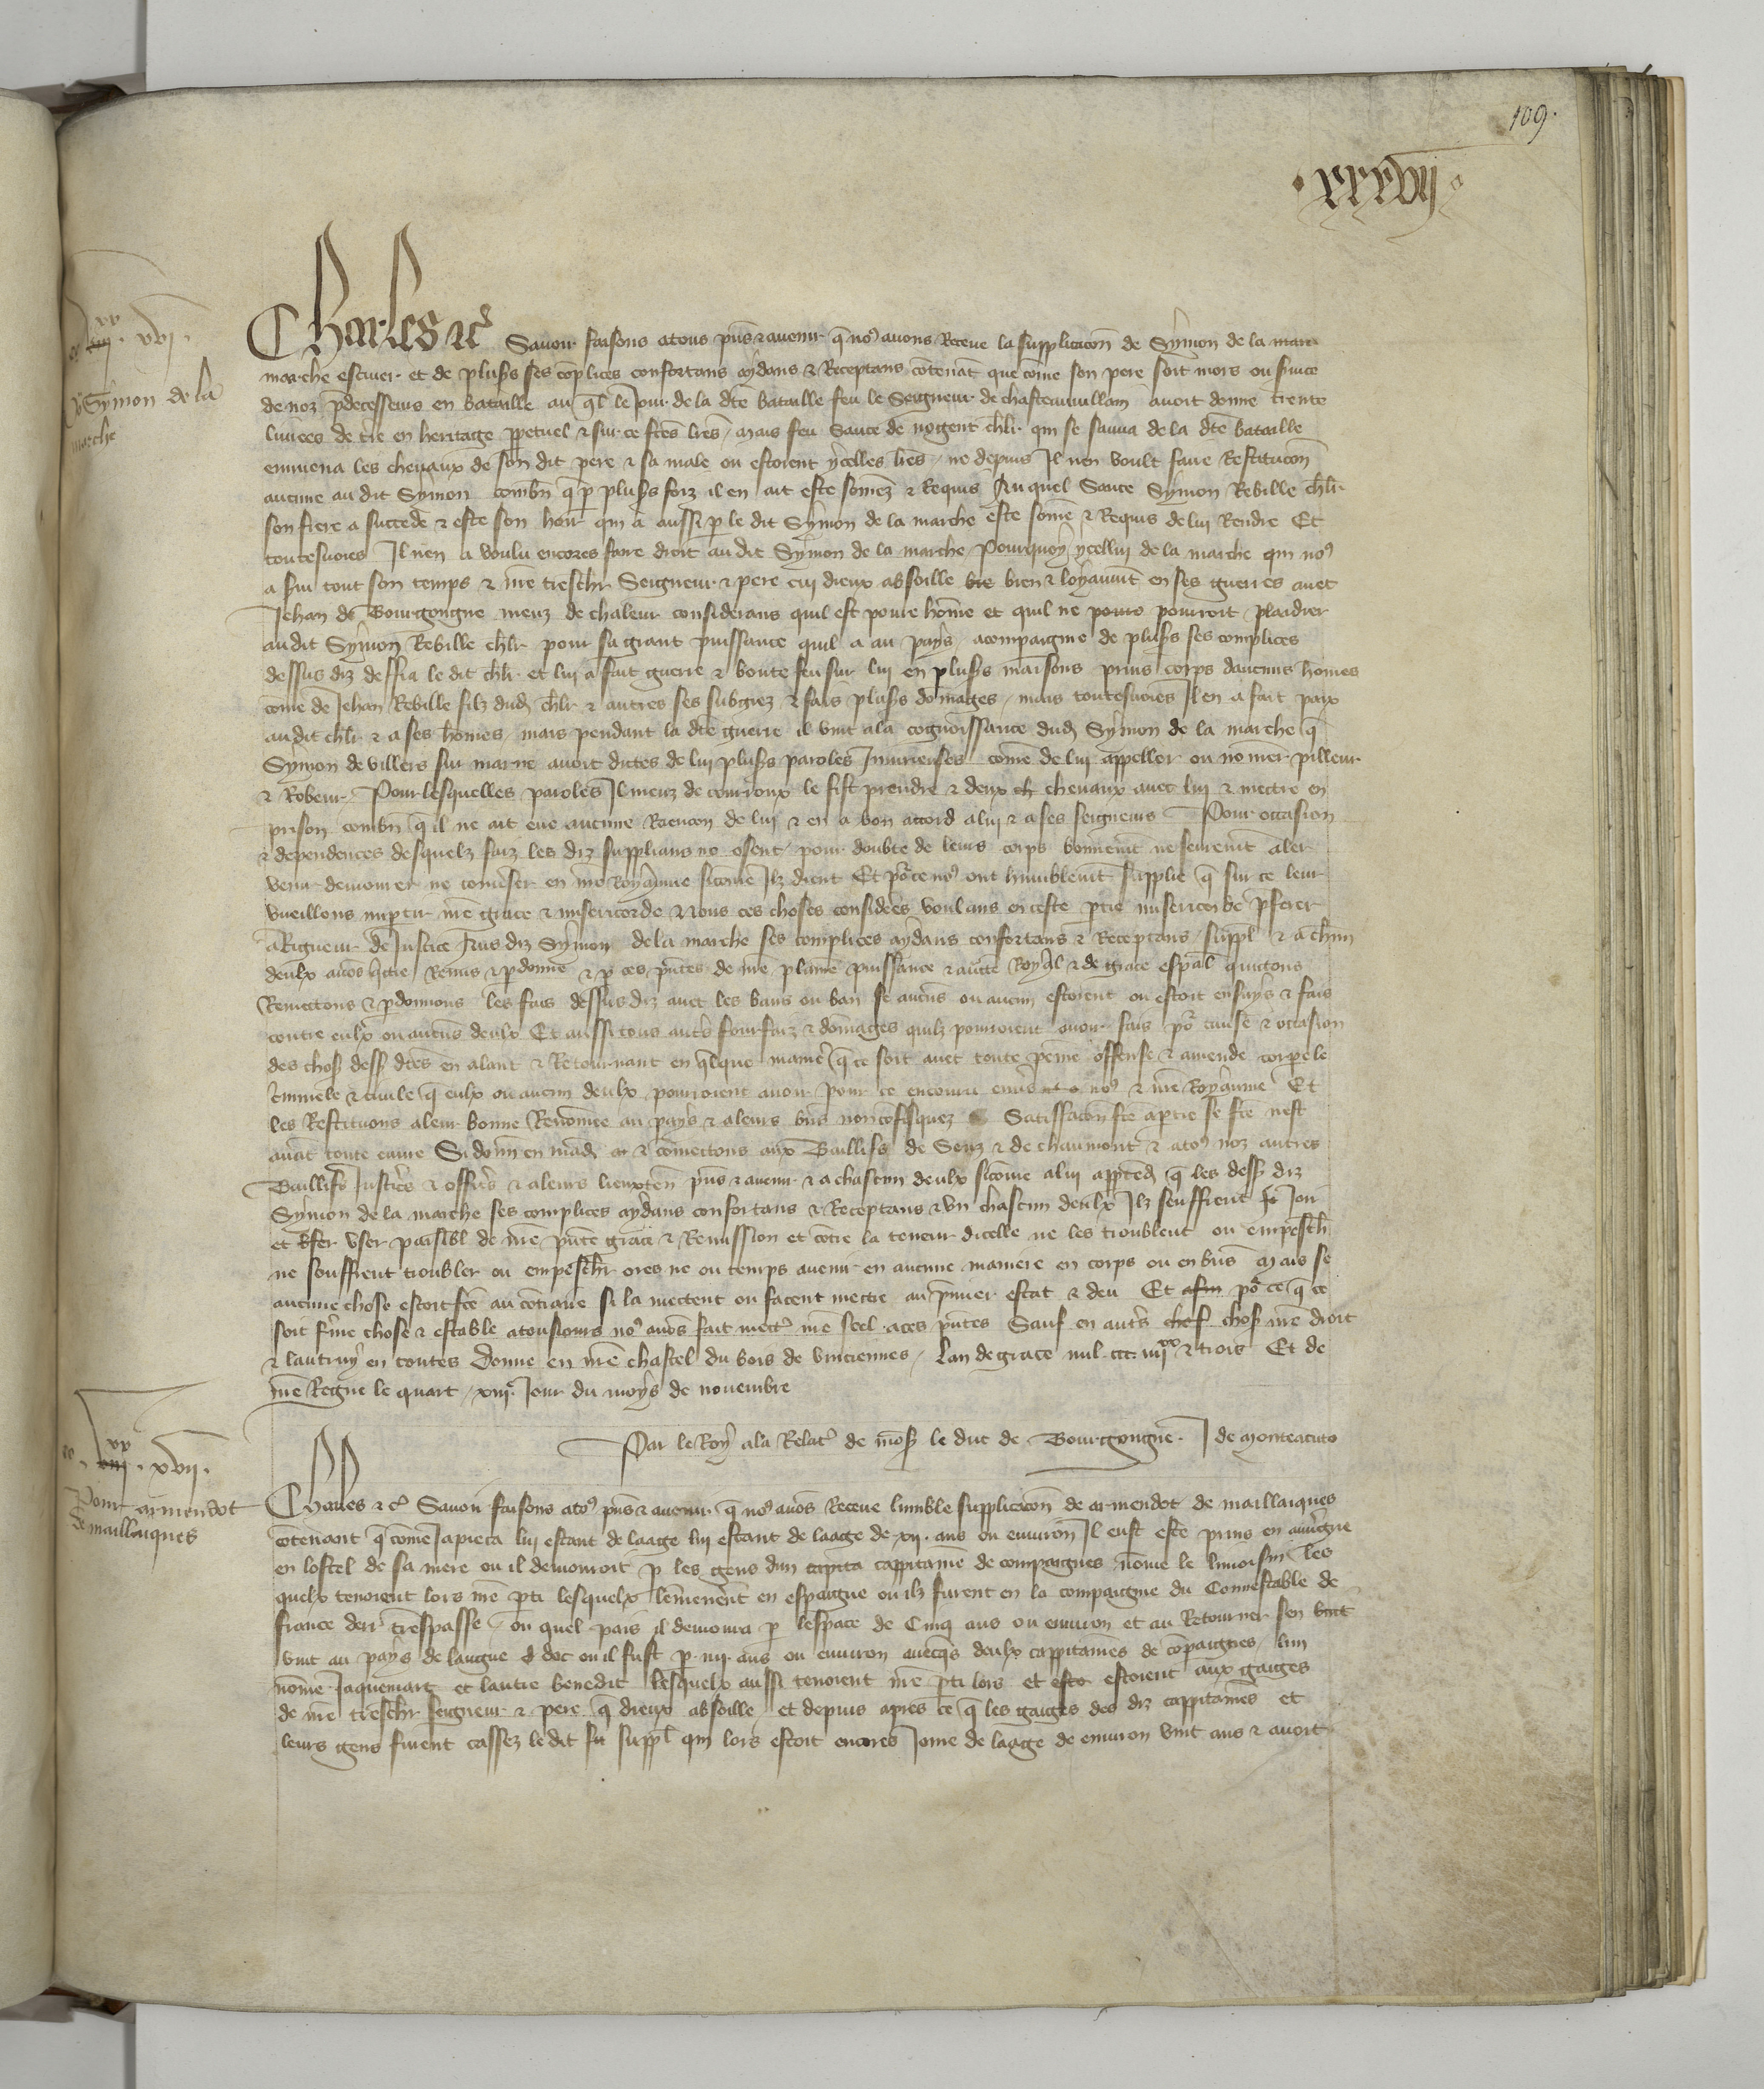 109.
xxxvii
Charles etc Savoir faisons atous pns et avenir q̄ noꝰ avons Receue la supplicacōn de Symon de la marc
marche escuier et de plusrs ses cōplices confortans aydans & Receptans cōtenāt que cōme son pere soit mors ou suice
de noz p̄decesseurs en bataille au q̄l le Jour de la dce bataille feu le Seigneur de chasteauvillain avoit donne trente
livrees de tr̄e en heritage ꝑpetuel & sur ce fces lr̄es / mais feu Sauce de nogent chlr qui se sauva de la dce bataille
enmena les chevaux de son dit pere & sa male ou estoient ycelles lr̄es / ne depuis Il nen voult faire Restitucōn
aucune au dit Symon combn̄ q̄ ꝑ plusrs foiz il en ait este somez & Requis Au quel Sauce Symon Rebille chlr
son frere a succede & este son hoir qui a aussi ꝑ le dit Symon de la marche este somē & Requis de lui Rendre Et
toutesvoies Il nen a voulu encores faire droit au dit Symon de la marche / Pourquoy ycellui de la marche qui noꝰ
a sui tout son temps & nr̄e treschr Seigneur & pere cui dieux absoille bie bien & loyaumt en ses guerres avec
Jehan de Bourgongne meuz de chaleur considerans quil est povre hōme et quil ne povro pourroit plaidier
au dit Symon Rebille chlr pour sa grant puissance quil a au pays / acompaignie de plusrs ses complices
dessus diz deffia le dit chlr et lui a fait guerre & boute feu sur lui en plusrs maisons prins corps daucuns hōmes
cōme de Jehan Rebille filz dud chlr & autres ses subgiez & fais plusrs dōmages / mais toutesvoies Il en a fait paix
au dit chlr & a ses hōmes / mais pendant la dce guerre il vint ala cognoissance dud Symon de la marche q̄
Symon de villers sur marne avoit dictes de lui plusrs paroles Iniurieuses cōme de lui appeller ou nōmer pilleur
& Robeur / Pour lesquelles paroles Il meuz de courroux le fist prendre & deux ch chevaux avec lui & mectre en
prison combn̄ q̄ il ne ait eue aucune Raencon de lui & en a bon accord a lui & a ses seigneurs Pour occasion
& dependences desquelz faiz les diz supplians no osent pour doubte de leurs corps bonnemt ne seuremt aler
venir demourer ne converser en nr̄e Royaume sicōme Ilz dient Et pōr ce noꝰ ont humblemt supplie q̄ sur ce leur
vueillons impartir nr̄e grace & misericorde Nous ces choses considerēes voulans en ceste ptie misericorde p̄ferer
a Rigueur de Justice Aus diz Symon de la marche ses complices aydans confortans & Receptans suppl & a chun
deulx avōs quictie Remis & ꝑdonne & ꝑ ces pn̄tes de nr̄e plaine puissance & aucte Royal & de grace espāl quictons
Remectons & ꝑdonnons les fais dessus diz avec les bans ou ban se aucūs ou aucun estoient ou estoit ensuys & fais
contre eulx ou aucūs deulx Et aussi tous autrs fourfaiz & dōmages quilz pourroient avoir fais pōr cause & occasion
des choss dess dces en alant & Retournant en q̄lque manie q̄ ce soit avec toute peine offense & amende corporele
crimnele & civile q̄ eulx ou aucun deulx pourroient avoir pour ce encouru envs noꝰ & nr̄e Royaume Et
les Restituons aleur bonne Renōmee au pays & aleurs bns non cōfisquez Satisfacōn fce aptie se fce nest
avāt toute euvre Si donn en mand & cōmectons aux Baillifs de Senz & de chaumont & atoꝰ noz autres
Baillifs Justics & offics & aleurs lieuxten pns & avenir & a chascun deulx sicōme alui appted q̄ les dess diz
Symon de la marche ses complices aydans confortans & Receptans & un chascun deulx Ilz seuffrent Joir
et user paisibl de nr̄e pn̄te grace & Remission et cōtre la teneur dicelle ne les troublent ou empesch
ne souffrent troubler ou empeschr ores ne ou temps avenir en aucune maniere en corps ou en bns Mais se
aucune chose estoit fce au cōtraire si la mectent ou facent mectre au p̄mier estat & deu Et afin pōr ce q̄ ce
soit ferme chose & estable atousjours noꝰ avōs fait mectr nr̄e scel aces pn̄tes Sauf en autrs chef choss nr̄e droit
& lautruy en toutes Donne en nr̄e chastel du bois de vinciennes / Lan de grace mil ccc iiijxx & trois Et de
nr̄e Regne le quart / xiije Jour du moys de novembre
Par le Roy ala Relacn de moss le duc de Bourgongne J de Monteacuto
Charles etc Savoir faisons atoꝰ pns & avenir q̄ noꝰ avōs Receue lumble supplicacōn de armendot de maillaiques
cōtenant q̄ cōme Japieca lui estant de laage lui estant de laage de xij. ans ou environ Il eust este prins en auvgne
en lostel de sa mere ou il demouroit ꝑ les gens dun cappita cappitaine de compaignes nōme le limosin les
quelx tenoient lors nr̄e pti lesquelx lēmenerēt en espaigne ou ilz furent en la compaignie du Connestable de
france derr trespasse / ou quel pais il demoura ꝑ lespace de Cinq ans ou environ et au Retourner sen vint
vint au pays de langue d doc ou il fust ꝑ iiij. ans ou environ avecqs deulx cappitaines de cōpaignes / lun
nōme Jaquemart et lautre benedit lesquelx aussi tenoient nr̄e pti lors et esto estoient aux gaiges
de nr̄e treschr seigneur & pere q̄ dieux absoille / et depuis apres ce q̄ les gaiges des diz cappitaines et
leurs gens furent cassez le dit su suppl qui lors estoit encores Jeune de laage de environ vint ans & avoit
xvj.
Pr Symon de la
marche
xvij.
Pour armendot
de maillaiques